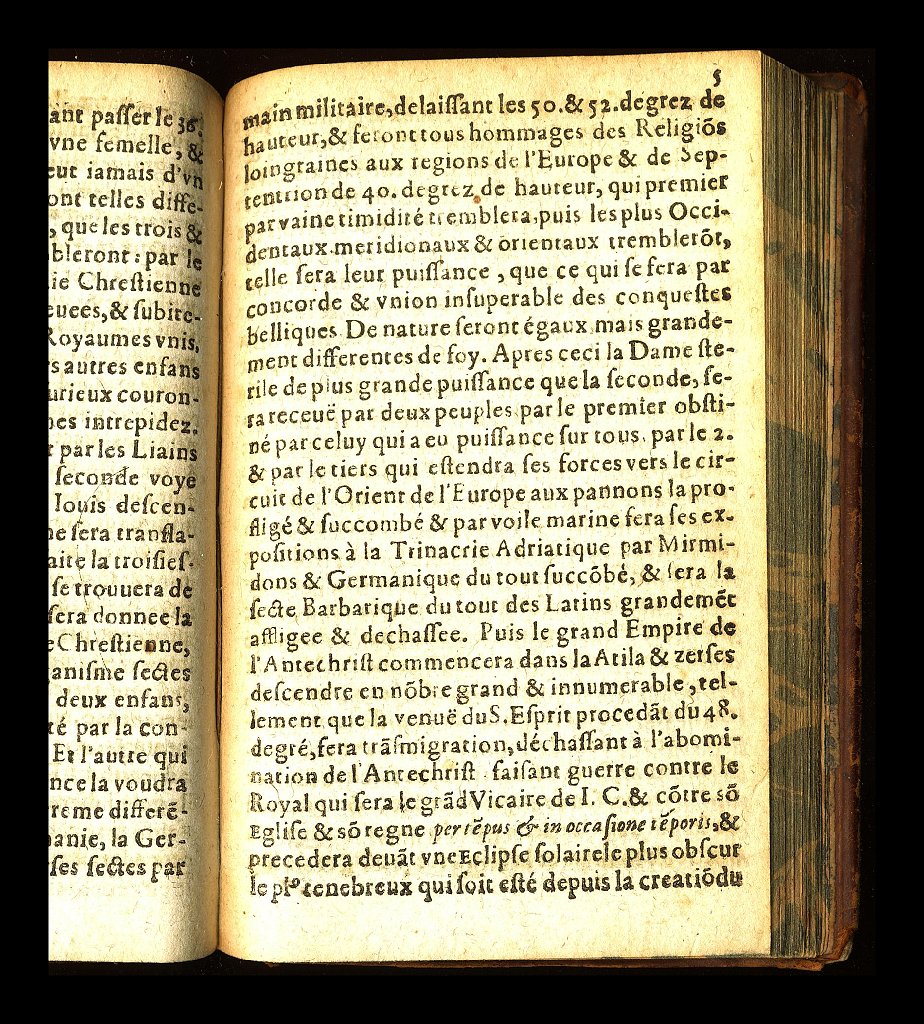 ant passer le 36.
vne femelle, &
eut iamais d'vn
ont telles diffe-
, que les trois &
bleront: par le
ie Chrestienne
euees, & subite-
Royaumes vnis,
s autres enfans
urieux couron-
es intrepidez.
par les Liains
seconde voye
Iouis descen-
ne sera transla-
aite la troisies-
se trouuera de
sera donnee la
e Chrestienne,
anisme sectes
deux enfans,
té par la con-
Et l'autre qui
nce la voudra
reme differẽ-
anie, la Ger-
ses sectes par
5
main militaire, delaissant les 50. & 52. degrez de
hauteur, & feront tous hommages des Religiõs
loingtaines aux regions de l'Europe & de Sep-
tentrion de 40. degrez de hauteur, qui premier
par vaine timidité tremblera, puis les plus Occi-
dentaux meridionaux & orientaux tremblerõt,
telle sera leur puissance, que ce qui se fera par
concorde & vnion insuperable des conquestes
belliques. De nature seront égaux, mais grande-
ment differentes de foy. Apres ceci la Dame ste-
rile de plus grande puissance que la seconde, se-
ra receuë par deux peuples par le premier obsti-
né par celuy qui a eu puissance sur tous, par le 2.
& par le tiers qui estendra ses forces vers le cir-
cuit de l'Orient de l'Europe aux pannons la pro-
fligé & succombé & par voile marine fera ses ex-
positions à la Trinacrie Adriatique par Mirmi-
dons & Germanique du tout succõbé, & sera la
secte Barbarique du tout des Latins grandemẽt
affligee & dechassee. Puis le grand Empire de
l'Antechrist commencera dans la Atila & zerses
descendre en nõbre grand & innumerable, tel-
lement que la venuë du S. Esprit procedãt du 48.
degré, fera trãsmigration, déchassant à l'abomi-
nation de l'Antechrist faisant guerre contre le
Royal qui sera le grãd Vicaire de I. C. & cõtre sõ
Eglise & sõ regne per tẽpus & in occasione tẽporis, &
precedera deuãt vne Eclipse solaire le plus obscur
le pl⁹ tenebreux qui soit esté depuis la creatiõ du